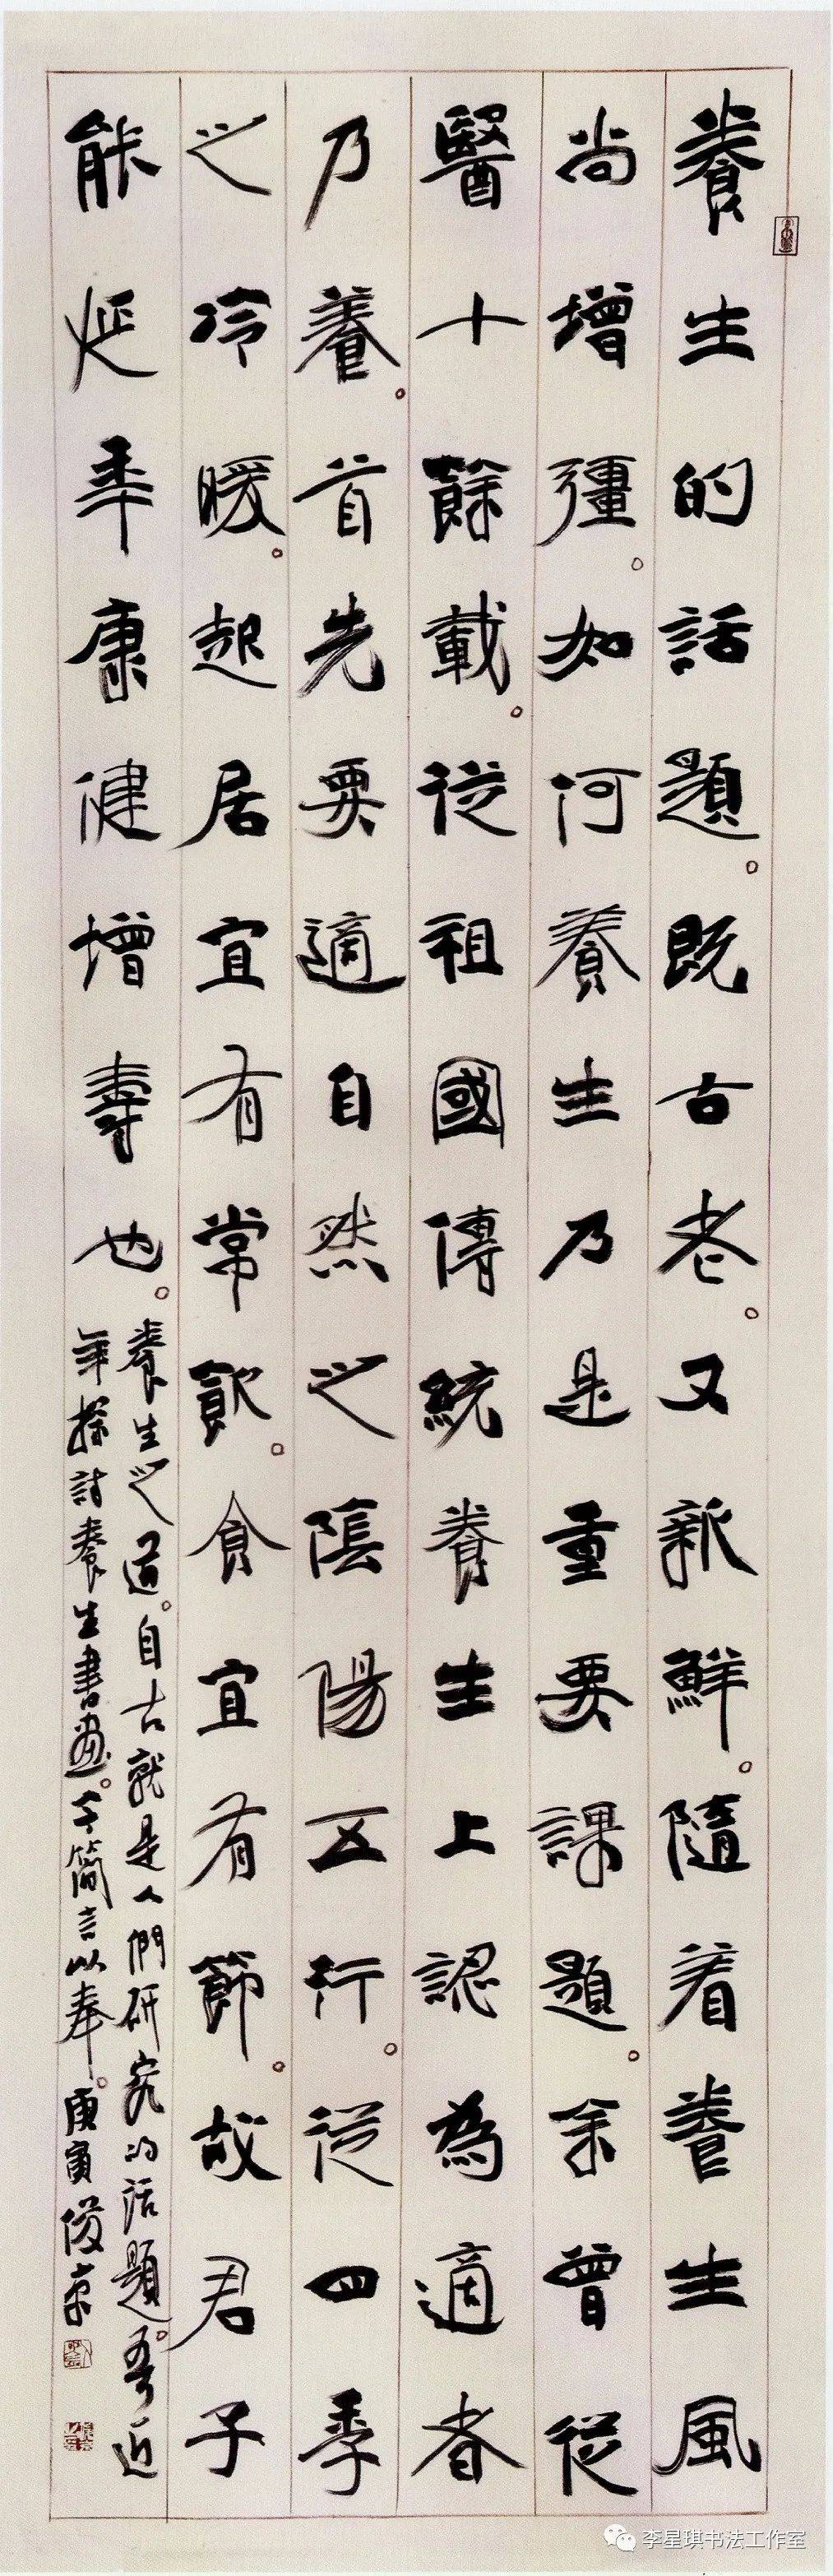 養生的話題。既古老。又新鮮。隨着養生風
尚增彊。如何養生乃是重要課題。余曾從
醫十餘載。從祖國傳統養生上認為適者
乃養。首先要適自然之陰陽五行。從四季
之冷暖。起居宜有常飲。食宜有節。故君子
能延年康健增壽也。
養生之道。自古就是人們研究的話題。吾近
年探討養生書画。予簡言以奉。庚寅俊京
李星琪书法工作室